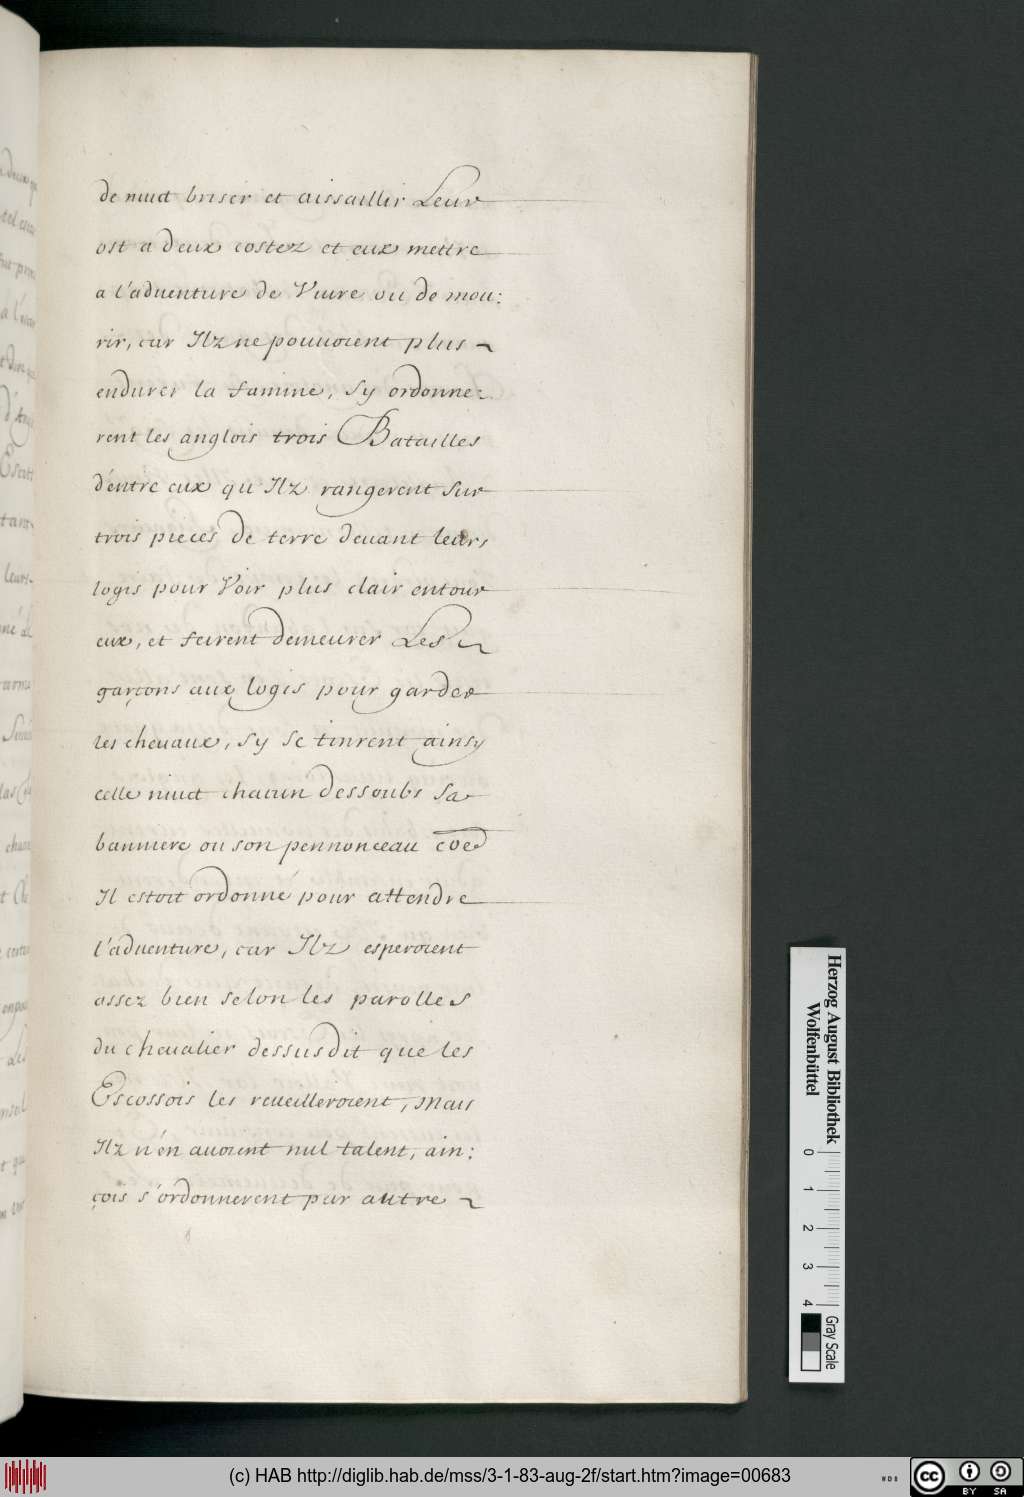 de nuict briser et aissaillir Leur
ost a deux costez et eux mettre
a l'aduenture de Viure ou de mou:
rir, car Ilz ne pouuoient plus
endurer la famine, sy ordonne:
rent les anglois trois Batailles
d'entre eux qu'Ilz rangerent sur
trois pieces de terre deuant leurs
logis pour Voir plus clair entour
eux, et feirent demeurer Les
garçons aux logis pour garder
les cheuaux, sy se tinrent ainsy
celle nuict chacun dessoubs sa
banniere ou son pennonceau
Il estoit ordonné pour attendre
l'aduenture, car Ilz esperoient
assez bien selon les parolles
du cheualier dessusdit que les
Escossois les reueilleroient, mais
Ilz n'en auoient nul talent, ain:
çois s'ordonnerent par autre
Herzog August Bibliothek
Wolfenbüttel
0 1 2 3 4
Gray Scale
(c) HAB http://diglib.hab.de/mss/3-1-83-aug-2f/start.htm?image=00683
cc BY SA